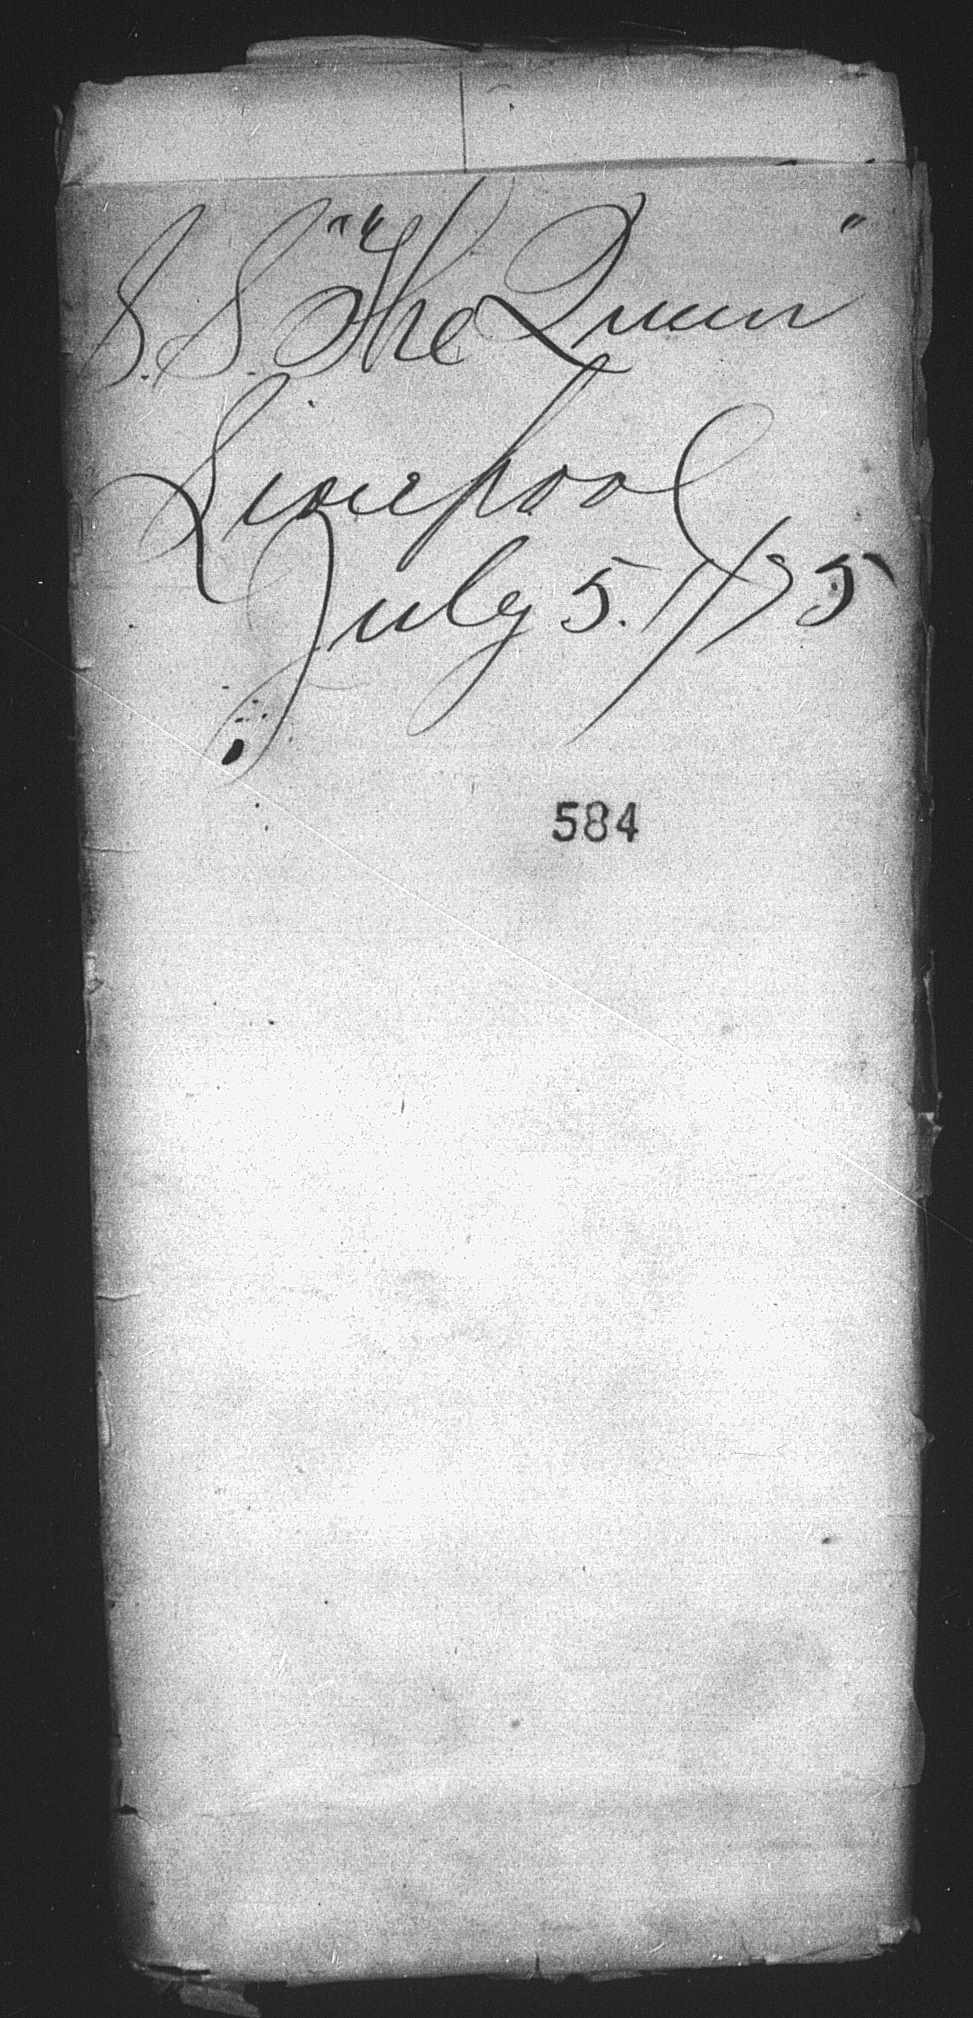 S. S. "The Queen"
Liverpool
July 5. 1875
584